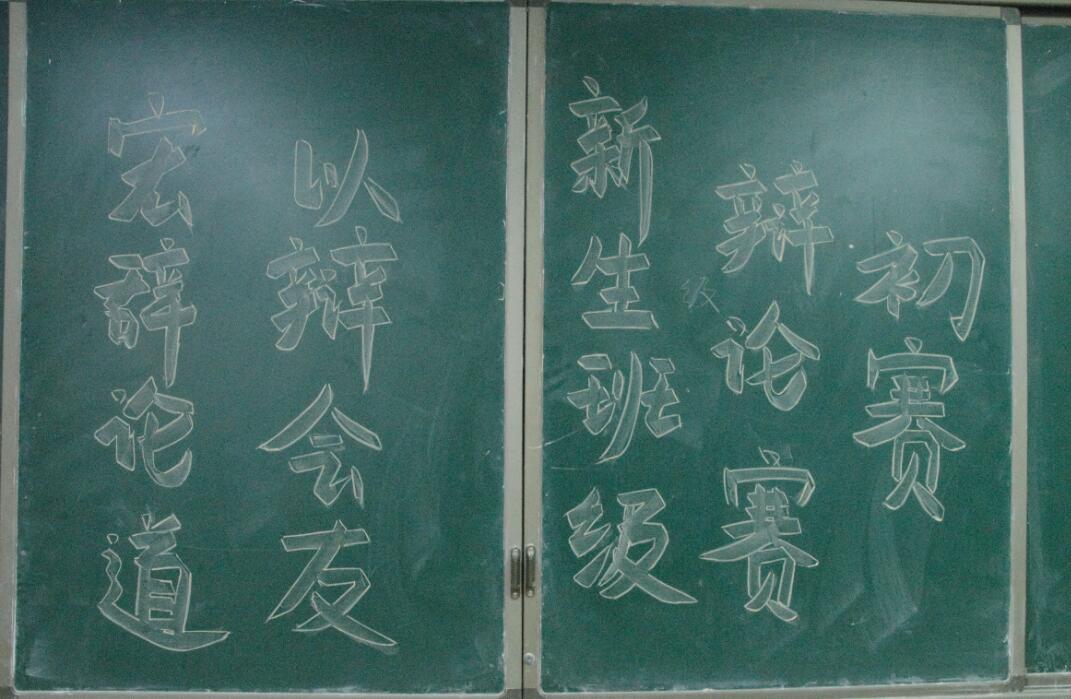 宏辞论道
以辩会友
新生班级
辩论赛
初赛